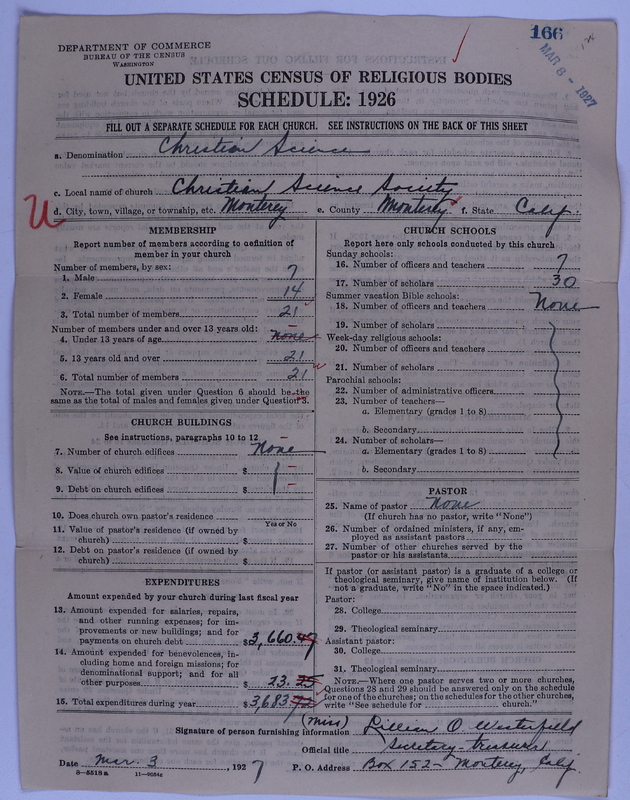 166
MAR 8 - 1927
DEPARTMENT OF COMMERCE
BUREAU OF THE CENSUS
WASHINGTON
UNITED STATES CENSUS OF RELIGIOUS BODIES
SCHEDULE: 1926
FILL OUT A SEPARATE SCHEDULE FOR EACH CHURCH. SEE INSTRUCTIONS ON THE BACK OF THIS SHEET
a. Denomination Christian Science
c. Local name of church Christian Science Society
U
d. City, town, village, or township, etc. Monterey e. County Monterey f. State Calif.
MEMBERSHIP
Report number of members according to definition of
member in your church
Number of members, by sex:
1. Male 7
2. Female 14
3. Total number of members 21
Number of members under and over 13 years old:
4. Under 13 years of age None
5. 13 years old and over 21
6. Total number of members 21
NOTE.—The total given under Question 6 should be the
same as the total of males and females given under Question 3.
CHURCH BUILDINGS
See instructions, paragraphs 10 to 12
7. Number of church edifices None
8. Value of church edifices $ —
9. Debt on church edifices $ —
10. Does church own pastor's residence
Yes or No
11. Value of pastor's residence (if owned by
church) $
12. Debt on pastor's residence (if owned by
church) $
EXPENDITURES
Amount expended by your church during last fiscal year
13. Amount expended for salaries, repairs,
and other running expenses; for im-
provements or new buildings; and for
payments on church debt $3,660.47
14. Amount expended for benevolences, in-
cluding home and foreign missions; for
denominational support; and for all
other purposes $ 23.25
15. Total expenditures during year $3,683.72
CHURCH SCHOOLS
Report here only schools conducted by this church
Sunday schools:
16. Number of officers and teachers 7
17. Number of scholars 30
Summer vacation Bible schools:
18. Number of officers and teachers None
19. Number of scholars
Week-day religious schools:
20. Number of officers and teachers
21. Number of scholars
Parochial schools:
22. Number of administrative officers
23. Number of teachers—
a. Elementary (grades 1 to 8)
b. Secondary
24. Number of scholars—
a. Elementary (grades 1 to 8)
b. Secondary
PASTOR
25. Name of pastor None
(If church has no pastor, write "None")
26. Number of ordained ministers, if any, em-
ployed as assistant pastors
27. Number of other churches served by the
pastor or his assistants
If pastor (or assistant pastor) is a graduate of a college or
theological seminary, give name of institution below. (If
not a graduate, write "No" in the space indicated.)
Pastor:
28. College
29. Theological seminary
Assistant pastor:
30. College
31. Theological seminary
NOTE.—Where one pastor serves two or more churches,
Questions 28 and 29 should be answered only on the schedule
for one of the churches; on the schedules for the other churches,
write "See schedule for church."
(Miss)
Signature of person furnishing information Lillian O Westerfield
Official title Secretary-treasurer
Date Mar. 3, 1927 P. O. Address Box 152- Monterey, Calif.
8—5518a 11—9084c